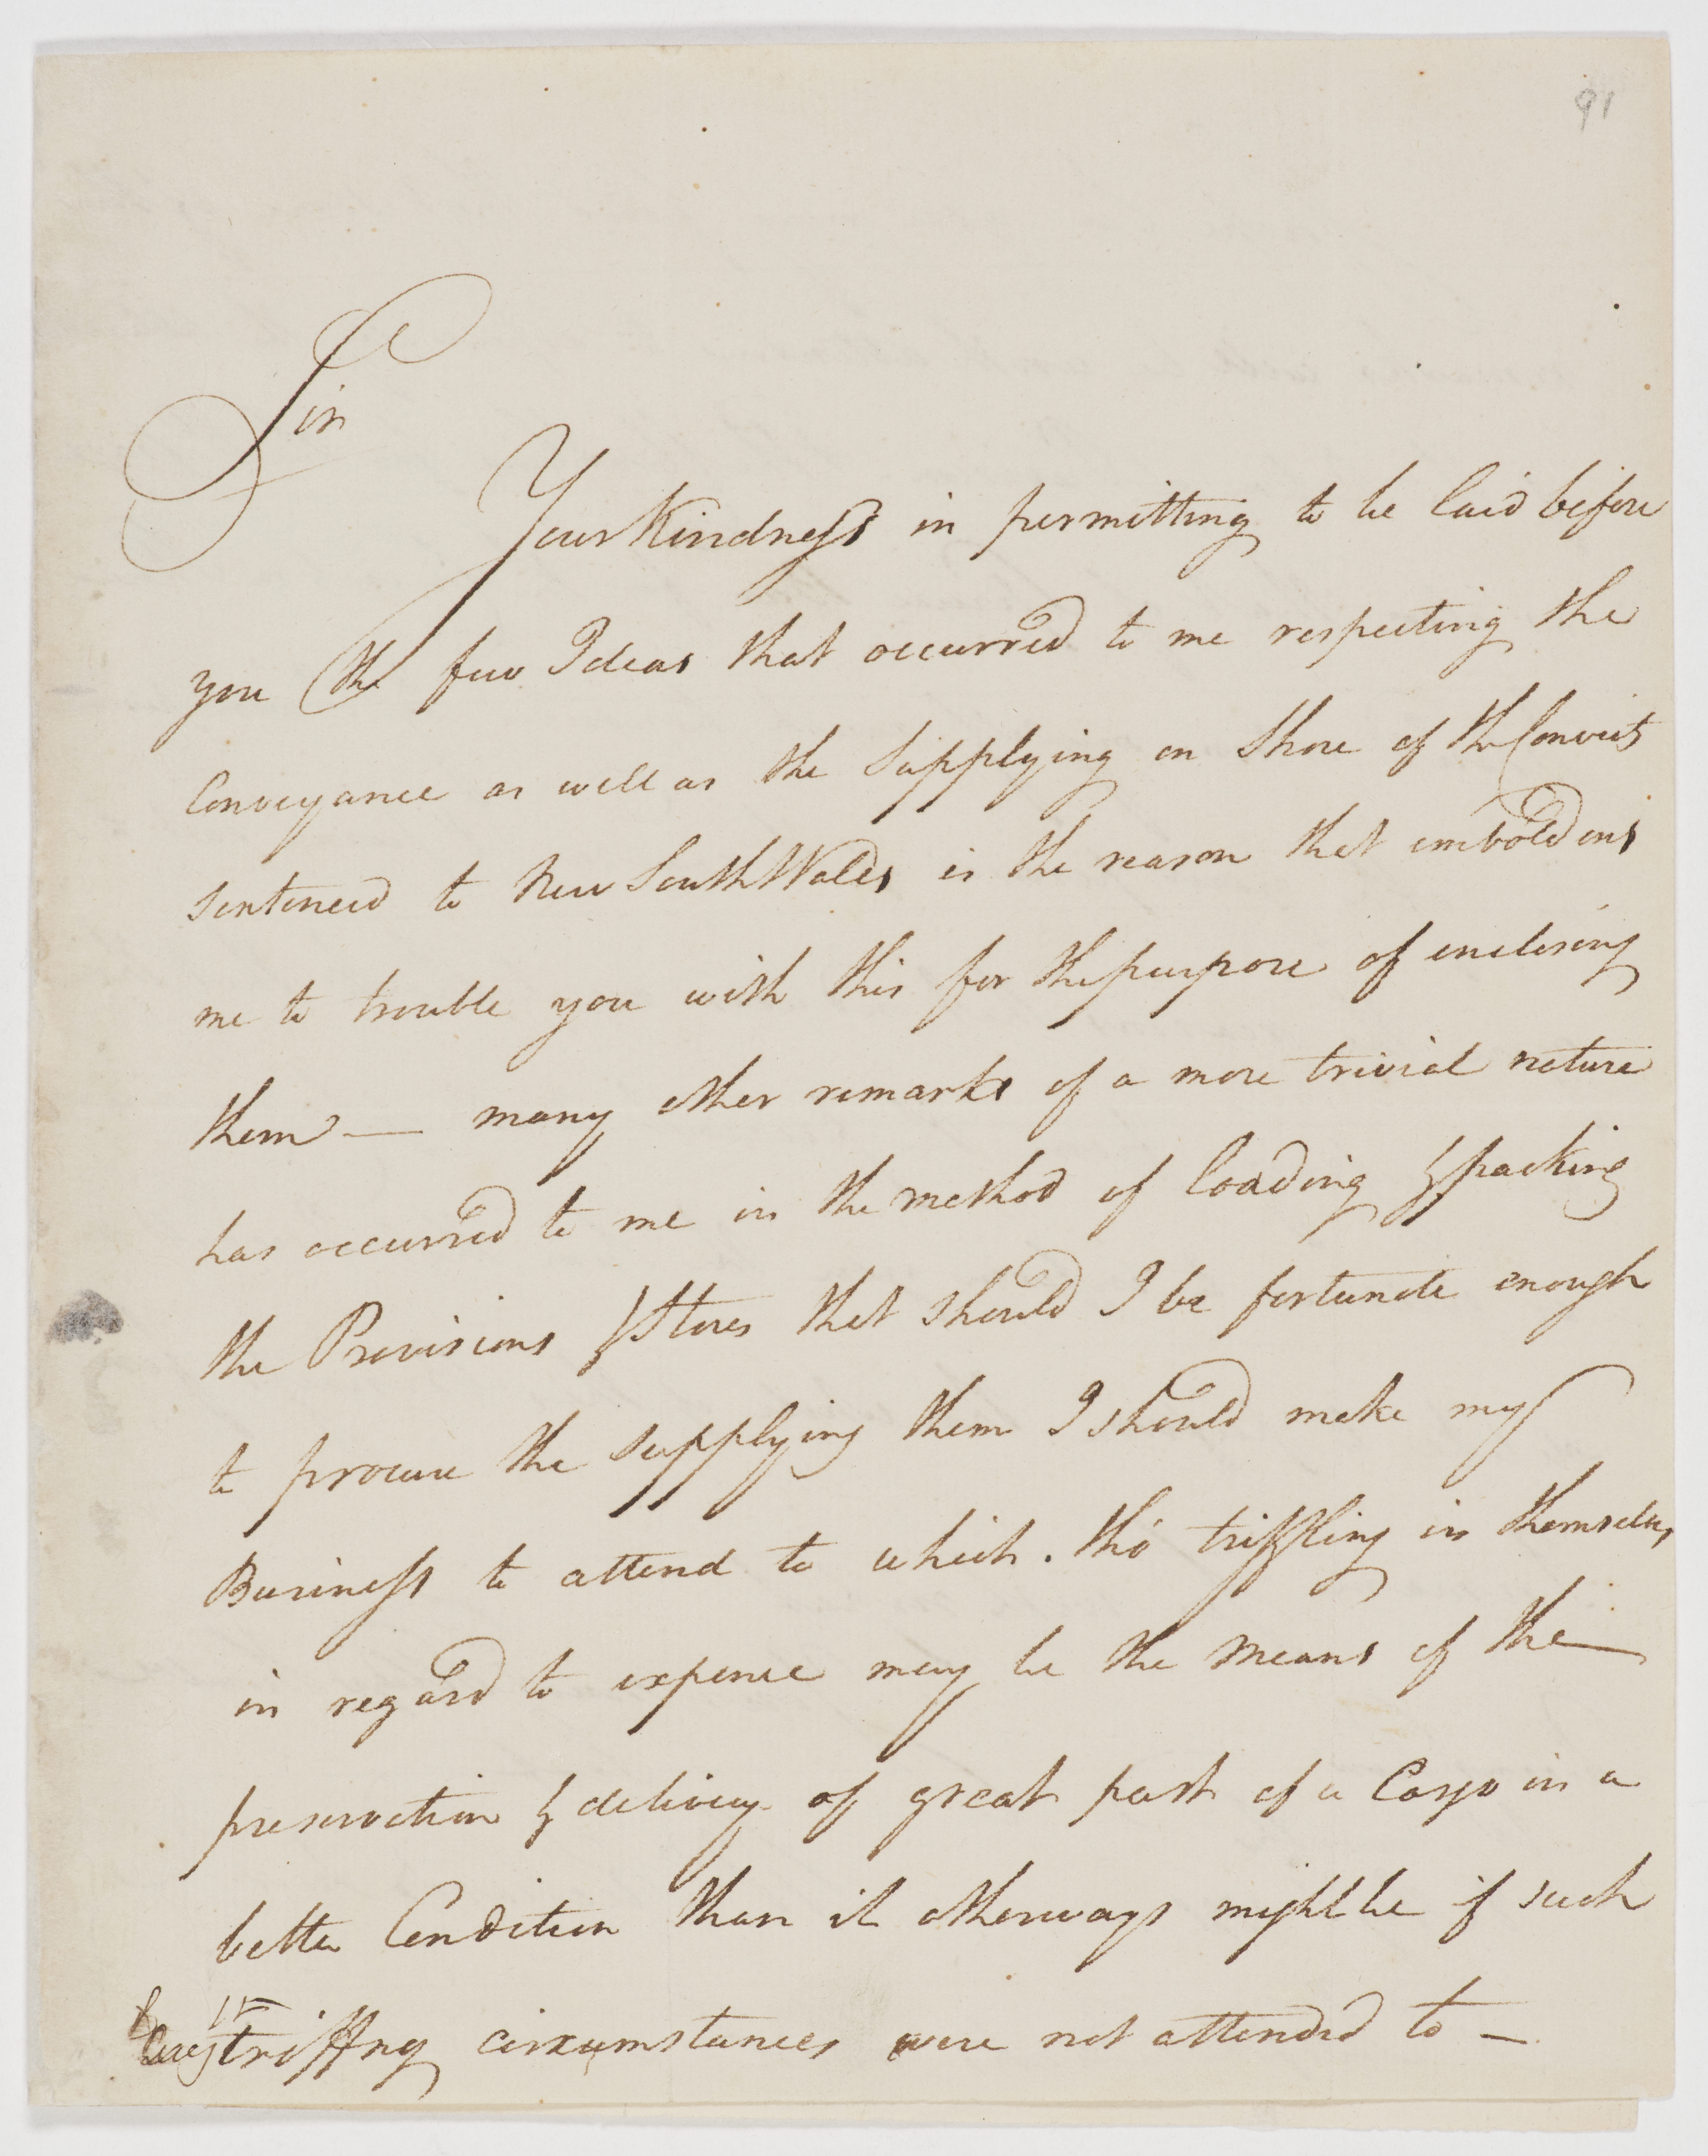 91
Sir
Your Kindness in permitting to be laid before
you the few Ideas that occurred to me respecting the
Conveyance as well as the Supplying on Shore of the Convicts
sentenced to New South Wales is the reason that emboldens
me to trouble you with this for the purpose of enclosing
them — many other remarks of a more trivial nature
has occurred to me in the method of loading & packing
the Provisions & Stores that should I be fortunate enough
to procure the supplying them I should make my
Business to attend to which. tho' triffling in themselves
in regard to expence may be the means of the —
preservation & delivery of great part of a Cargo in a
better Condition than it otherways might be if such
triffing circumstances were not attended to —